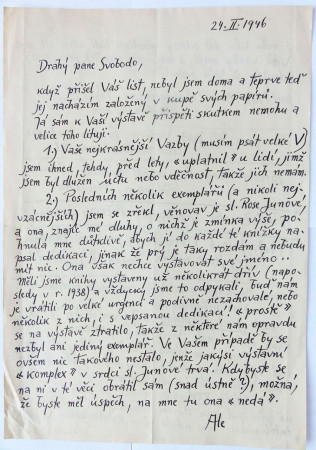 24. II. 1946
Drahý pane Svobodo,
když přišel Váš list, nebyl jsem doma a teprve teď
jej nacházím založený v kupě svých papírů.
Já sám k Vaší výstavě přispěti skutkem nemohu a
velice toho lituji.
1.) Vaše nejkrásnější Vazby (musím psát velké V)
jsem ihned tehdy před lety, „uplatnil" u lidí, jimž
jsem byl dlužen úctu nebo vděčnost, takže jich nemám.
2.) Posledních několik exemplářů (a nikoli nej-
vzácnějších) jsem se zřekl, věnovav je sl. Rose Junové,
a ona, znajíc mé dluhy, o nichž je zmínka výše, po-
hnula mne důtklivě, abych jí do každé te knížky na-
psal dedikaci, jinak že prý je taky rozdám a nebudu
mít nic. Ona však nechce vystavovat své jméno..
Měli jsme knihy vystaveny už několikrát dřív (napo-
sledy v r. 1938) a vždycky jsme to odpykali, buď nám
je vrátili po velké urgenci a podivně nezachovalé, nebo
několik z nich, i s vepsanou dedikací! „prostě"
se na výstavě ztratilo, takže z některé nám opravdu
nezbyl ani jediný exemplář. Ve Vašem případě by se
ovšem nic takového nestalo, jenže jakýsi výstavní
„komplex" v srdci sl. Junové trvá. Kdybyste se
na ni v té věci obrátil sám (snad ústně?), možná,
že byste měl úspěch, na mne tu ona „nedá".